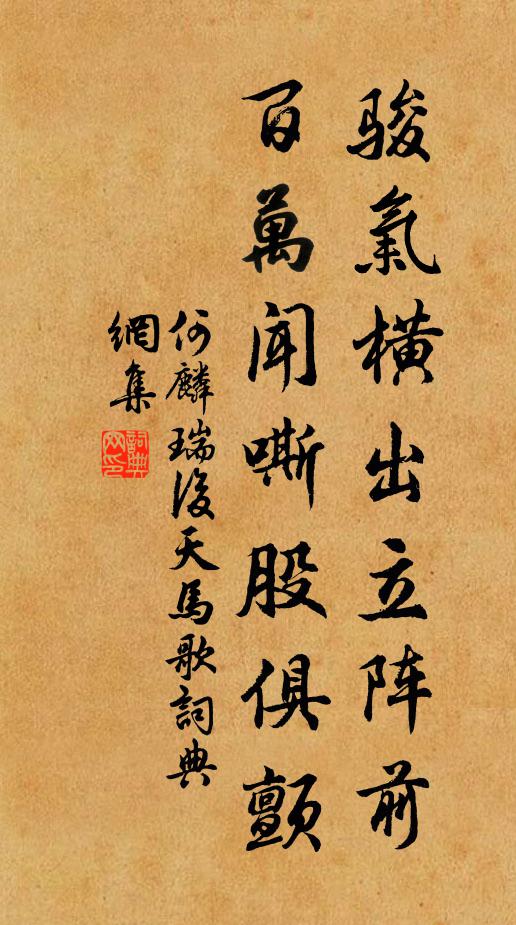 骏氣橫出立阵前
百萬聞嘶股俱顫
何麟瑞後天馬歌詞典
網集
詞典網印